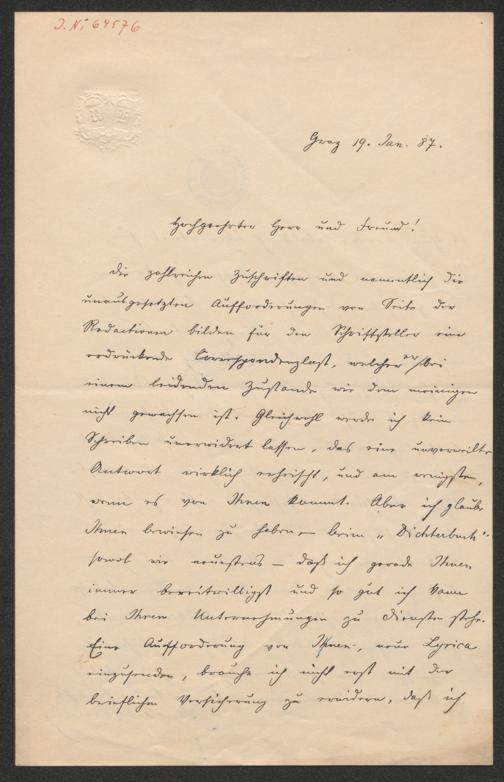 J. N: 64576
Graz 19. Jan. 87.
Hochgeehrter Herr und Freund!
Die zahlreichen Zuschriften und namentlich die
unausgesetzten Aufforderungen von Seite der
Redactionen bilden für den Schriftsteller eine
erdrückende Correspondenzlast, welcher er bei
einem leidenden Zustande wie dem meinigen
nicht gewachsen ist. Gleichwohl werde ich kein
Schreiben unerwidert lassen, das eine unverweilte
Antwort wirklich erheischt, und am wenigsten,
wenn es von Ihnen kommt. Aber ich glaube
Ihnen bewiesen zu haben – beim „Dichterbuch"
sowol wie neuestens – daß ich gerade Ihnen
immer bereitwilligst und so gut ich kann
bei Ihren Unternehmungen zu Diensten stehe.
Eine Aufforderung von Ihnen, neue Lyrica
einzusenden, brauche ich nicht erst mit der
brieflichen Versicherung zu erwidern, daß ich